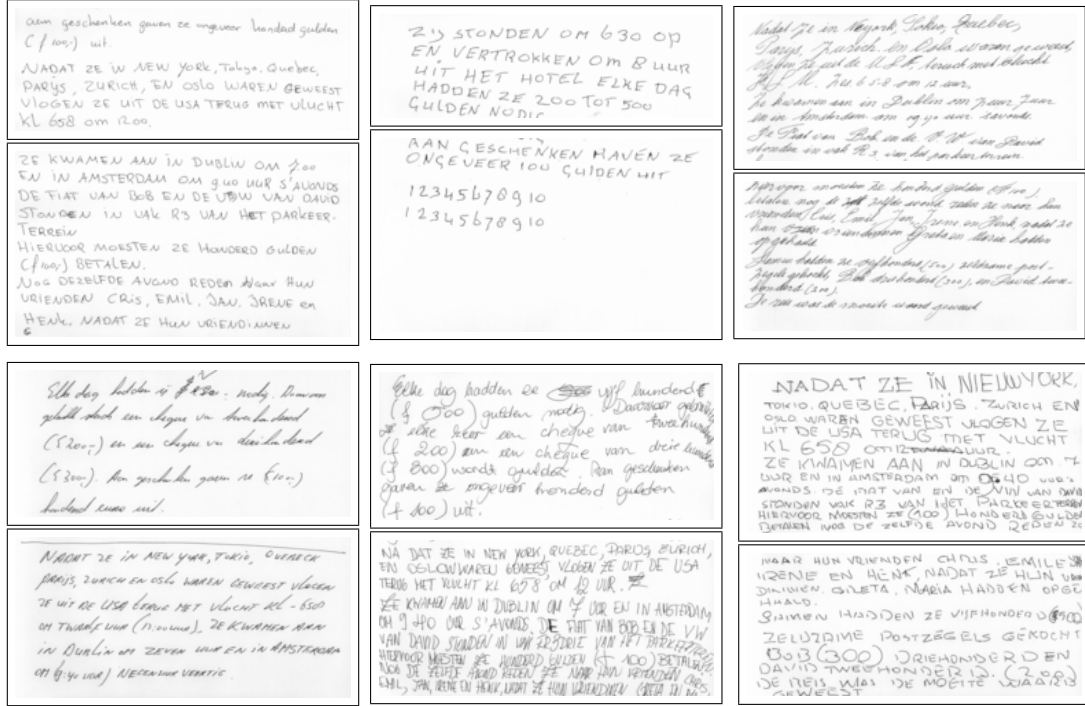 aan geschenken gaven ze ongeveer honderd gulden
(ƒ 100,-) uit.
NADAT ZE IN NEW YORK, Tokyo, Quebec,
PARYS, ZURICH, EN OSLO WAREN GEWEEST
VLOGEN ZE UIT DE USA TERUG MET VLUCHT
KL 658 OM 1200.
ZE KWAMEN AAN IN DUBLIN OM 7.00
EN IN AMSTERDAM OM 9.40 UUR S'AVONDS
DE FIAT VAN BOB EN DE VW VAN DAVID
STONDEN IN VAK R3 VAN HET PARKEER-
TERREIN
HIERVOOR MOESTEN ZE HONDERD GULDEN
(ƒ 100,-) BETALEN.
NOG DEZELFDE AVOND REDEN Naar HUN
VRIENDEN CRIS, EMIL, JAN, IRENE en
HENK. NADAT ZE HUN VRIENDINNEN
ZIJ STONDEN OM 630 OP
EN VERTROKKEN OM 8 UUR
UIT HET HOTEL ELKE DAG
HADDEN ZE 200 TOT 500
GULDEN NODIG
AAN GESCHENKEN HAVEN ZE
ONGEVEER 100 GULDEN UIT
12345678910
12345678910
Nadat ze in Neyork, Tokio, Quebec,
Parys, Zurich en Oslo waren geweest,
vlogen ze uit de U.S.A. terug met vlucht
K.L.M. 658 om 12 uur.
Ze kwamen aan in Dublin om 7 uur
en in Amsterdam om 9.40 uur savonds.
De Fiat van Bob en de V.W. van David
stonden in vak R3 van het parkeerterrein.
Hiervoor moesten ze honderd gulden (ƒ 100)
betalen nog de zelfde avond reden ze naar hun
vrienden Cris, Emil, Jan, Irene en Henk, nadat ze
hun vriendinnen Greta en Maria hadden
opgehaald.
Samen hadden ze vijfhonderd (500) zeldzame post-
zegels gekocht, Bob driehonderd (300), en David twee-
honderd (200).
De reis was de moeite waard geweest
Elke dag hadden ze nodig. Daarvoor
een cheque van tweehonderd
(ƒ 200,-) en een cheque van driehonderd
(ƒ 300,-). Aan geschenken gaven ze ƒ 100,-
honderd uit.
NADAT ZE IN NEW YORK, TOKIO, QUEBECK
PARIJS, ZURICH EN OSLO WAREN GEWEEST VLOGEN
ZE UIT DE USA TERUG MET VLUCHT KL-658
OM TWAALF UUR (12:00 UUR). ZE KWAMEN AAN
IN DUBLIN OM ZEVEN UUR EN IN AMSTERDAM
OM 9:40 UUR)
Elke dag hadden ze vijf hunderd
(ƒ 500) gulden nodig. Daarvoor
ze elke keer een cheque van
(ƒ 200) en een cheque van drie
(ƒ 300) gulden. Aan geschenken
gaven ze ongeveer honderd gulden
(ƒ 100) uit.
NA DAT ZE IN NEW YORK, QUEBEC, PARIJS ZURICH,
EN OSLOW WAREN GEWEEST VLOGEN ZE UIT DE USA
TERUG MET VLUCHT KL 658 OM 12 UUR.
ZE KWAMEN AAN IN DUBLIN OM 7 UUR EN IN AMSTERDAM
OM 9 UUR S'AVONDS, DE FIAT VAN BOB EN DE VW
VAN DAVID STONDEN IN VAK VAN HET PARKEERTERREIN
HIERVOOR MOESTEN ZE HONDERD GULDEN (ƒ 100) BETALEN
NOG DE ZELFDE AVOND REDEN ZE NAAR HUN VRIENDEN CHRIS,
EMIL, JAN, IRENE EN HENK, NADAT ZE HUN VRIENDINEN GRETA EN
NADAT ZE IN NIEUWYORK,
TOKIO, QUEBEC, PARIJS. ZURICH EN
OSLO WAREN GEWEEST VLOGEN ZE
UIT DE USA TERUG MET VLUCHT
KL 658 OM UUR.
ZE KWAMEN AAN IN DUBLIN OM 7
UUR EN IN AMSTERDAM OM 9.40 UUR
AVONDS. DE FIAT VAN EN DE VW VAN DAVID
STONDEN VAK R3 VAN HET PARKEERTERREIN
HIERVOOR MOESTEN ZE (100) HONDERD GULDEN
BETALEN NOG DE ZELFDE AVOND REDEN ZE
NAAR HUN VRIENDEN CHRIS, EMILE
IRENE EN HENK, NADAT ZE HUN
GRETA, MARIA HADDEN OPGE
HAALD.
SAMEN HADDEN ZE VIJFHONDERD (500)
ZELDZAME POSTZEGELS GEKOCHT
BOB (300) DRIEHONDERD EN
DAVID TWEEHONDERD (200)
DE REIS WAS DE MOEITE WAARD
GEWEEST